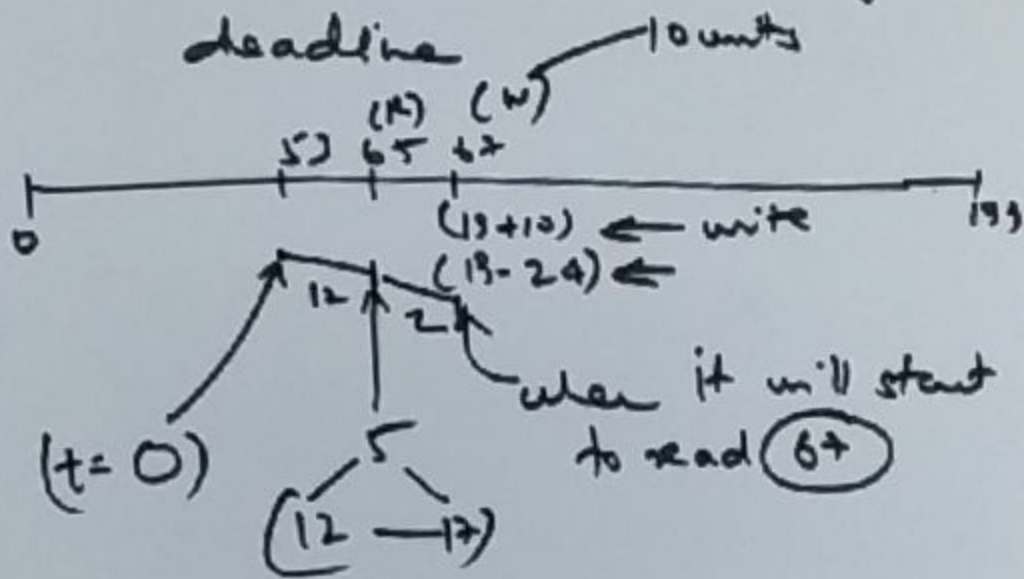 deadline 10 units
(R) (W)
53 65 67
0 199
(19+10) ← write
(19-24) ←
12 2
when it will start
to read 67
(t=0) 5
(12 — 17)